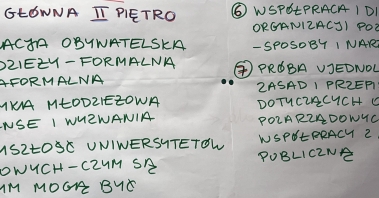 GŁÓWNA II PIĘTRO
ACJA OBYWATELSKA
DZIEŻY - FORMALNA
AFORMALNA
YKA MŁODZIEŻOWA
NSE I WYZWANIA
YSZŁOŚĆ UNIWERSYTETÓW
OWYCH - CZYM SĄ
YM MOGĄ BYĆ
⑥ WSPÓŁPRACA I DI
ORGANIZACJI POZ
- SPOSOBY I NARZ
⑦ PRÓBA UJEDNOL
ZASAD I PRZEPI
DOTYCZĄCYCH O
POZARZĄDOWYC
WSPÓŁPRACY Z
PUBLICZNĄ